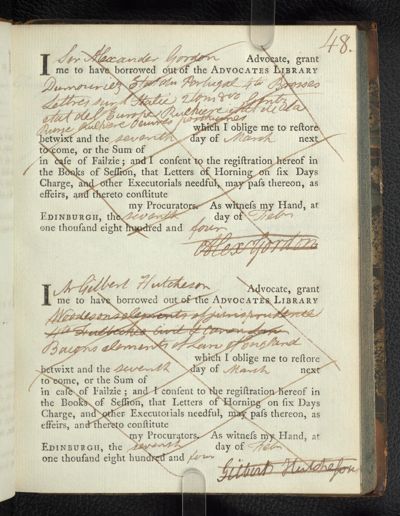 48.
I Sir Alexander Gordon Advocate, grant
me to have borrowed out of the ADVOCATES LIBRARY
Dumouriez Etat du Portugal 4to Brosses
Lettres sur l'Italie 2 tom 8vo
etat del Europe
which I oblige me to reſtore
betwixt and the seventh day of March next
to come, or the Sum of
in caſe of Failzie; and I conſent to the regiſtration hereof in
the Books of Seſſion, that Letters of Horning on ſix Days
Charge, and other Executorials needful, may paſs thereon, as
effeirs, and thereto conſtitute
my Procurators. As witneſs my Hand, at
EDINBURGH, the seventh day of Febr
one thouſand eight hundred and four
Alex Gordon
I Mr Gilbert Hutcheson Advocate, grant
me to have borrowed out of the ADVOCATES LIBRARY
Woodesons elements of jurisprudence
4to
elements of Law of England
which I oblige me to reſtore
betwixt and the seventh day of March next
to come, or the Sum of
in caſe of Failzie; and I conſent to the regiſtration hereof in
the Books of Seſſion, that Letters of Horning on ſix Days
Charge, and other Executorials needful, may paſs thereon, as
effeirs, and thereto conſtitute
my Procurators. As witneſs my Hand, at
EDINBURGH, the seventh day of Febr
one thouſand eight hundred and four
Gilbert Hutcheson